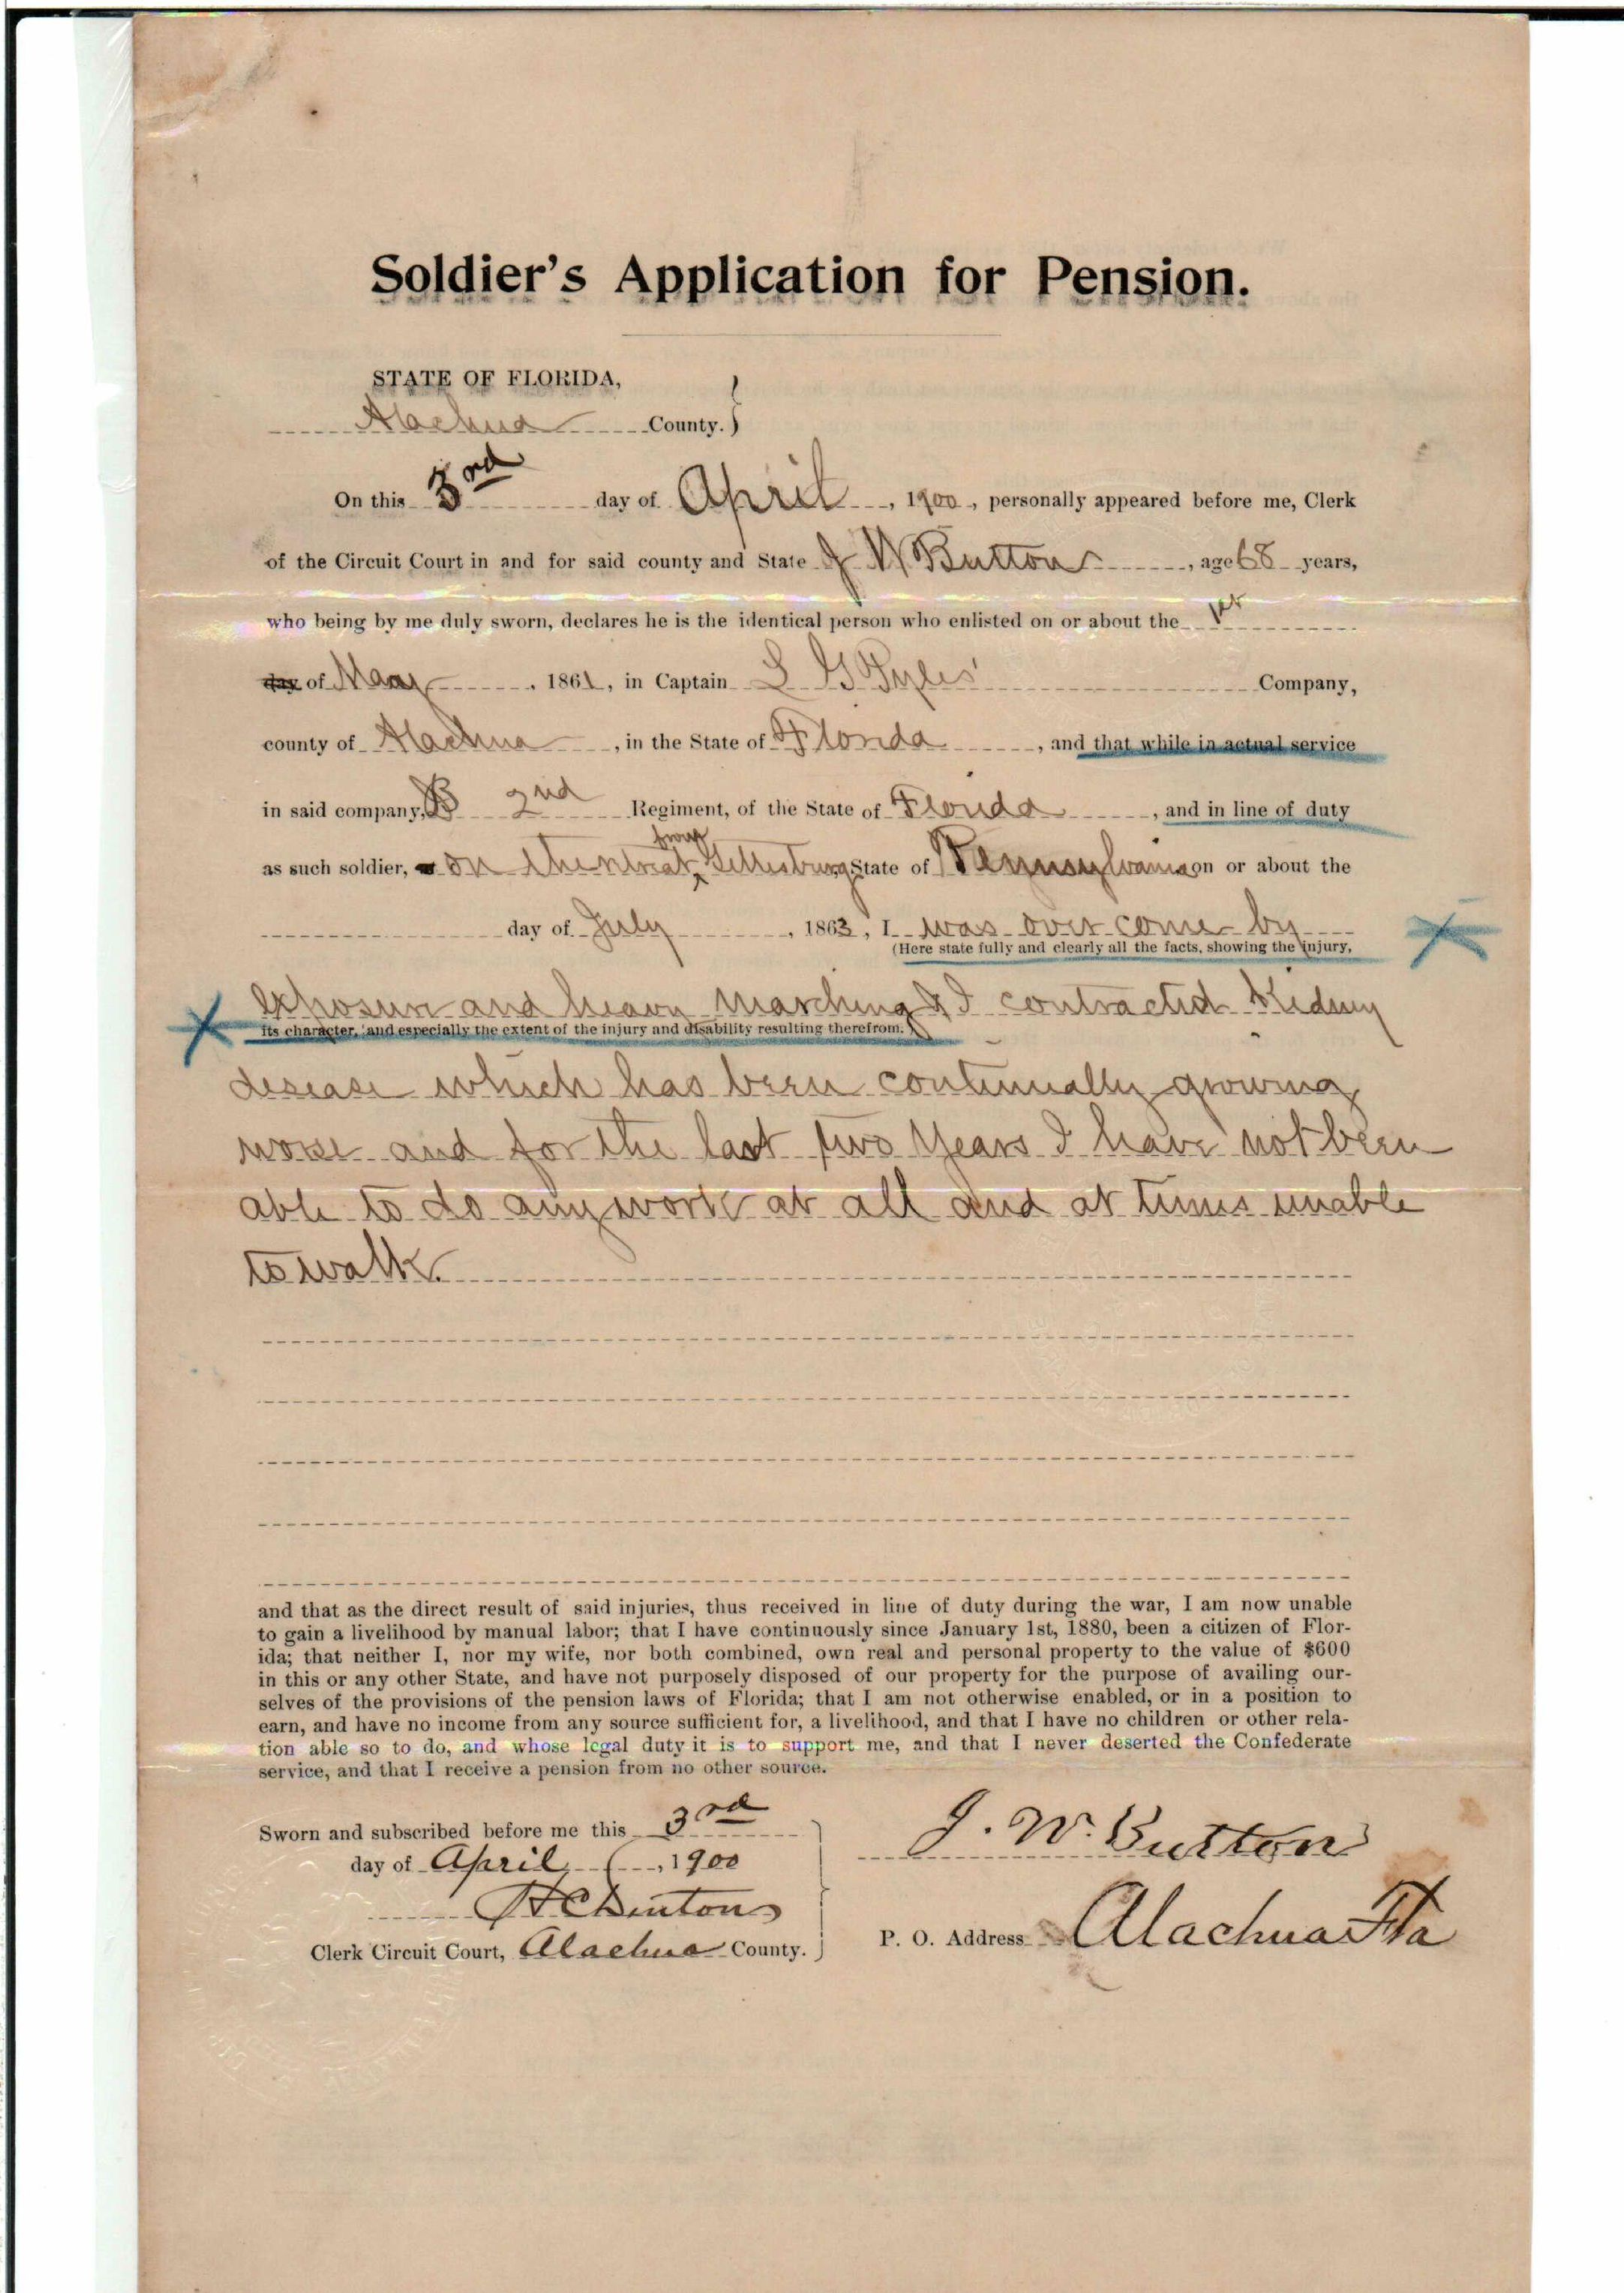 Soldier's Application for Pension.
STATE OF FLORIDA,
Alachua County. }
On this 3rd day of April, 1900, personally appeared before me, Clerk
of the Circuit Court in and for said county and State J W Button, age 68 years,
who being by me duly sworn, declares he is the identical person who enlisted on or about the 1st
day of May, 1861, in Captain L G Pyles' Company,
county of Alachua, in the State of Florida, and that while in actual service
in said company, B 2nd Regiment, of the State of Florida, and in line of duty
as such soldier, on the retreat from Gettesburg, State of Pennsylvania on or about the
day of July, 1863, I was over come by
(Here state fully and clearly all the facts, showing the injury,
exposure and heavy marching & I contracted Kidney
its character, and especially the extent of the injury and disability resulting therefrom.)
desease which has been continually growing
worse and for the last two years I have not been
able to do any work at all and at times unable
to walk.
and that as the direct result of said injuries, thus received in line of duty during the war, I am now unable
to gain a livelihood by manual labor; that I have continuously since January 1st, 1880, been a citizen of Flor-
ida; that neither I, nor my wife, nor both combined, own real and personal property to the value of $600
in this or any other State, and have not purposely disposed of our property for the purpose of availing our-
selves of the provisions of the pension laws of Florida; that I am not otherwise enabled, or in a position to
earn, and have no income from any source sufficient for, a livelihood, and that I have no children or other rela-
tion able so to do, and whose legal duty it is to support me, and that I never deserted the Confederate
service, and that I receive a pension from no other source.
Sworn and subscribed before me this 3rd
day of April, 1900
J. W. Button
H C Denton
Clerk Circuit Court, Alachua County.
P. O. Address Alachua Fla